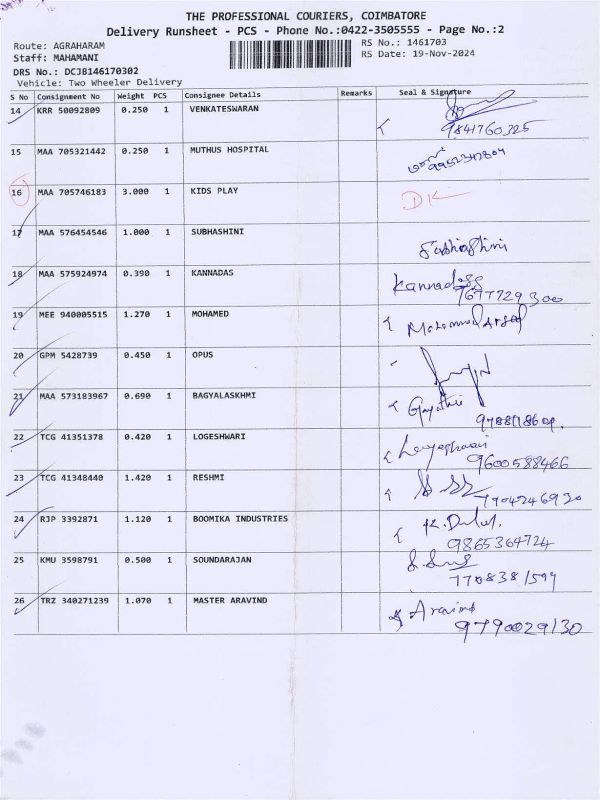 THE PROFESSIONAL COURIERS, COIMBATORE
Delivery Runsheet - PCS - Phone No.:0422-3505555 - Page No.:2
Route: AGRAHARAM
RS No.: 1461703
Staff: MAHAMANI
RS Date: 19-Nov-2024
DRS No.: DCJB146170302
Vehicle: Two Wheeler Delivery
S No Consignment No Weight PCS Consignee Details Remarks Seal & Signature
14 KRR 50092809 0.250 1 VENKATESWARAN
9841760325
15 MAA 705321442 0.250 1 MUTHUS HOSPITAL
16 MAA 705746183 3.000 1 KIDS PLAY DK
17 MAA 576454546 1.000 1 SUBHASHINI
18 MAA 575924974 0.390 1 KANNADAS Kannadass
7677729300
19 MEE 940005515 1.270 1 MOHAMED
20 GPM 5428739 0.450 1 OPUS
21 MAA 573183967 0.690 1 BAGYALASKHMI Gayathri
22 TCG 41351378 0.420 1 LOGESHWARI
9600588466
23 TCG 41348440 1.420 1 RESHMI
24 RJP 3392871 1.120 1 BOOMIKA INDUSTRIES
9865364724
25 KMU 3598791 0.500 1 SOUNDARAJAN
26 TRZ 340271239 1.070 1 MASTER ARAVIND Aravind
9790029130